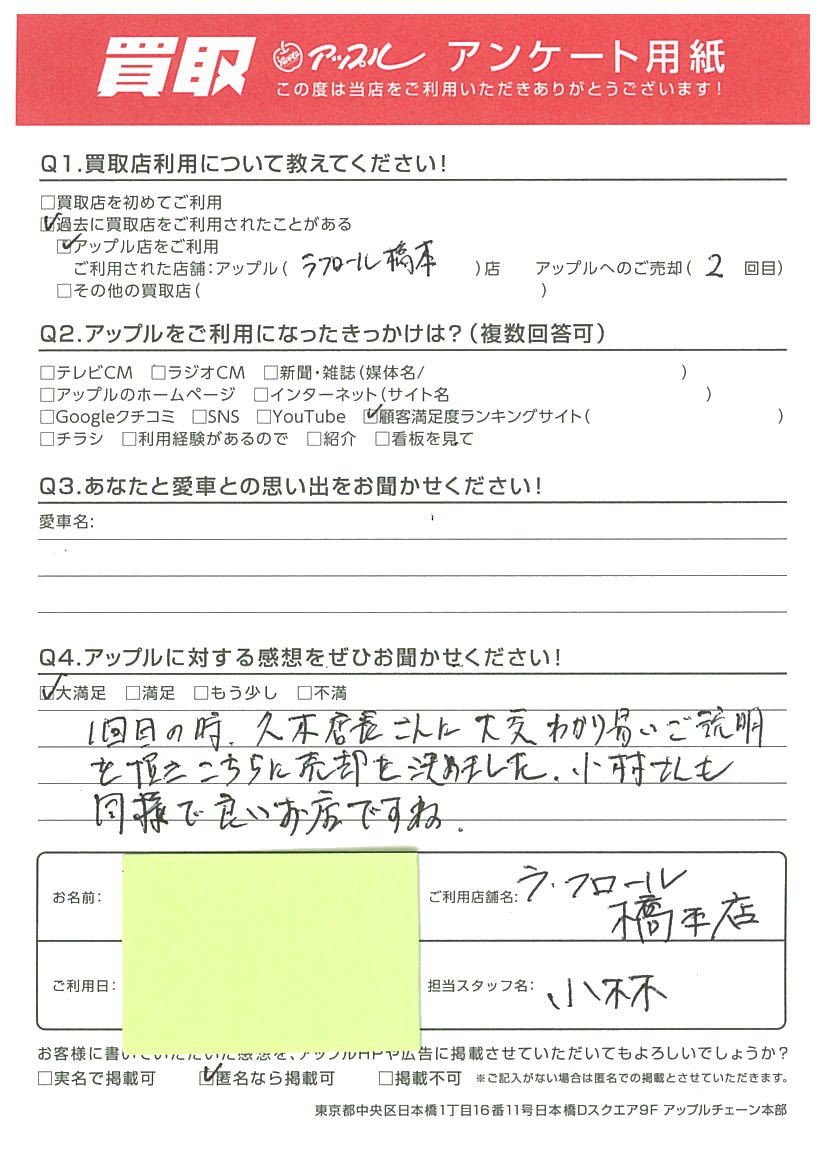 買取 アップル アンケート用紙
この度は当店をご利用いただきありがとうございます!
Q1.買取店利用について教えてください!
□買取店を初めてご利用
☑過去に買取店をご利用されたことがある
☑アップル店をご利用
ご利用された店舗:アップル( ラフロール橋本 )店 アップルへのご売却( 2 回目)
□その他の買取店( )
Q2.アップルをご利用になったきっかけは?(複数回答可)
□テレビCM □ラジオCM □新聞・雑誌(媒体名/ )
□アップルのホームページ □インターネット(サイト名 )
□Googleクチコミ □SNS □YouTube ☑顧客満足度ランキングサイト( )
□チラシ □利用経験があるので □紹介 □看板を見て
Q3.あなたと愛車との思い出をお聞かせください!
愛車名:
Q4.アップルに対する感想をぜひお聞かせください!
☑大満足 □満足 □もう少し □不満
1回目の時、久木店長さんに大変わかり易いご説明
を頂きこちらに売却を決めました。小林さんも
同様で良いお店ですね。
お名前:
ご利用店舗名: ラ・フロール
橋本店
ご利用日:
担当スタッフ名: 小林
お客様に書いていただいた感想を、アップルHPや広告に掲載させていただいてもよろしいでしょうか?
□実名で掲載可 ☑匿名なら掲載可 □掲載不可 ※ご記入がない場合は匿名での掲載とさせていただきます。
東京都中央区日本橋1丁目16番11号日本橋Dスクエア9F アップルチェーン本部